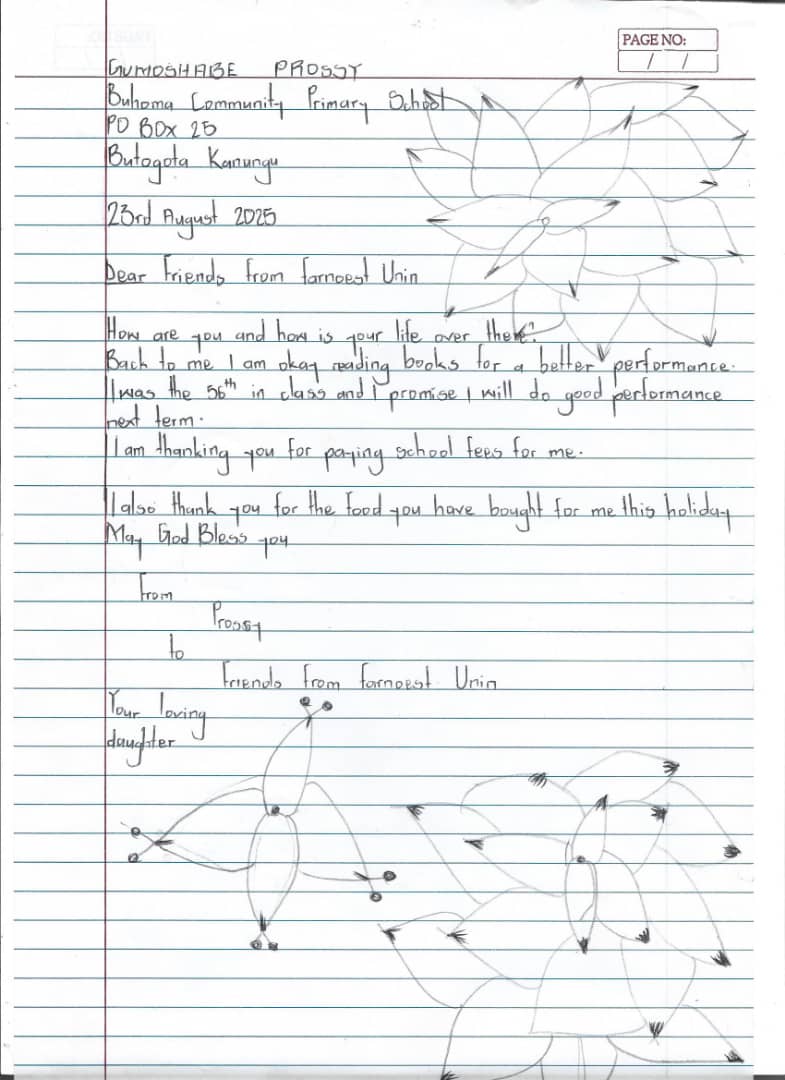 PAGE NO:
/ /
GUMOSHABE PROSSY
Buhoma Community Primary School
PO BOX 25
Butogota Kanungu
23rd August 2025
Dear Friends from farnoest Unin
How are you and how is your life over there?
Back to me I am okay reading books for a better performance.
I was the 56th in class and I promise I will do good performance
next term.
I am thanking you for paying school fees for me.
I also thank you for the food you have bought for me this holiday
May God Bless you
From
Prossy
to
Friends from farnoest Unin
Your loving
daughter